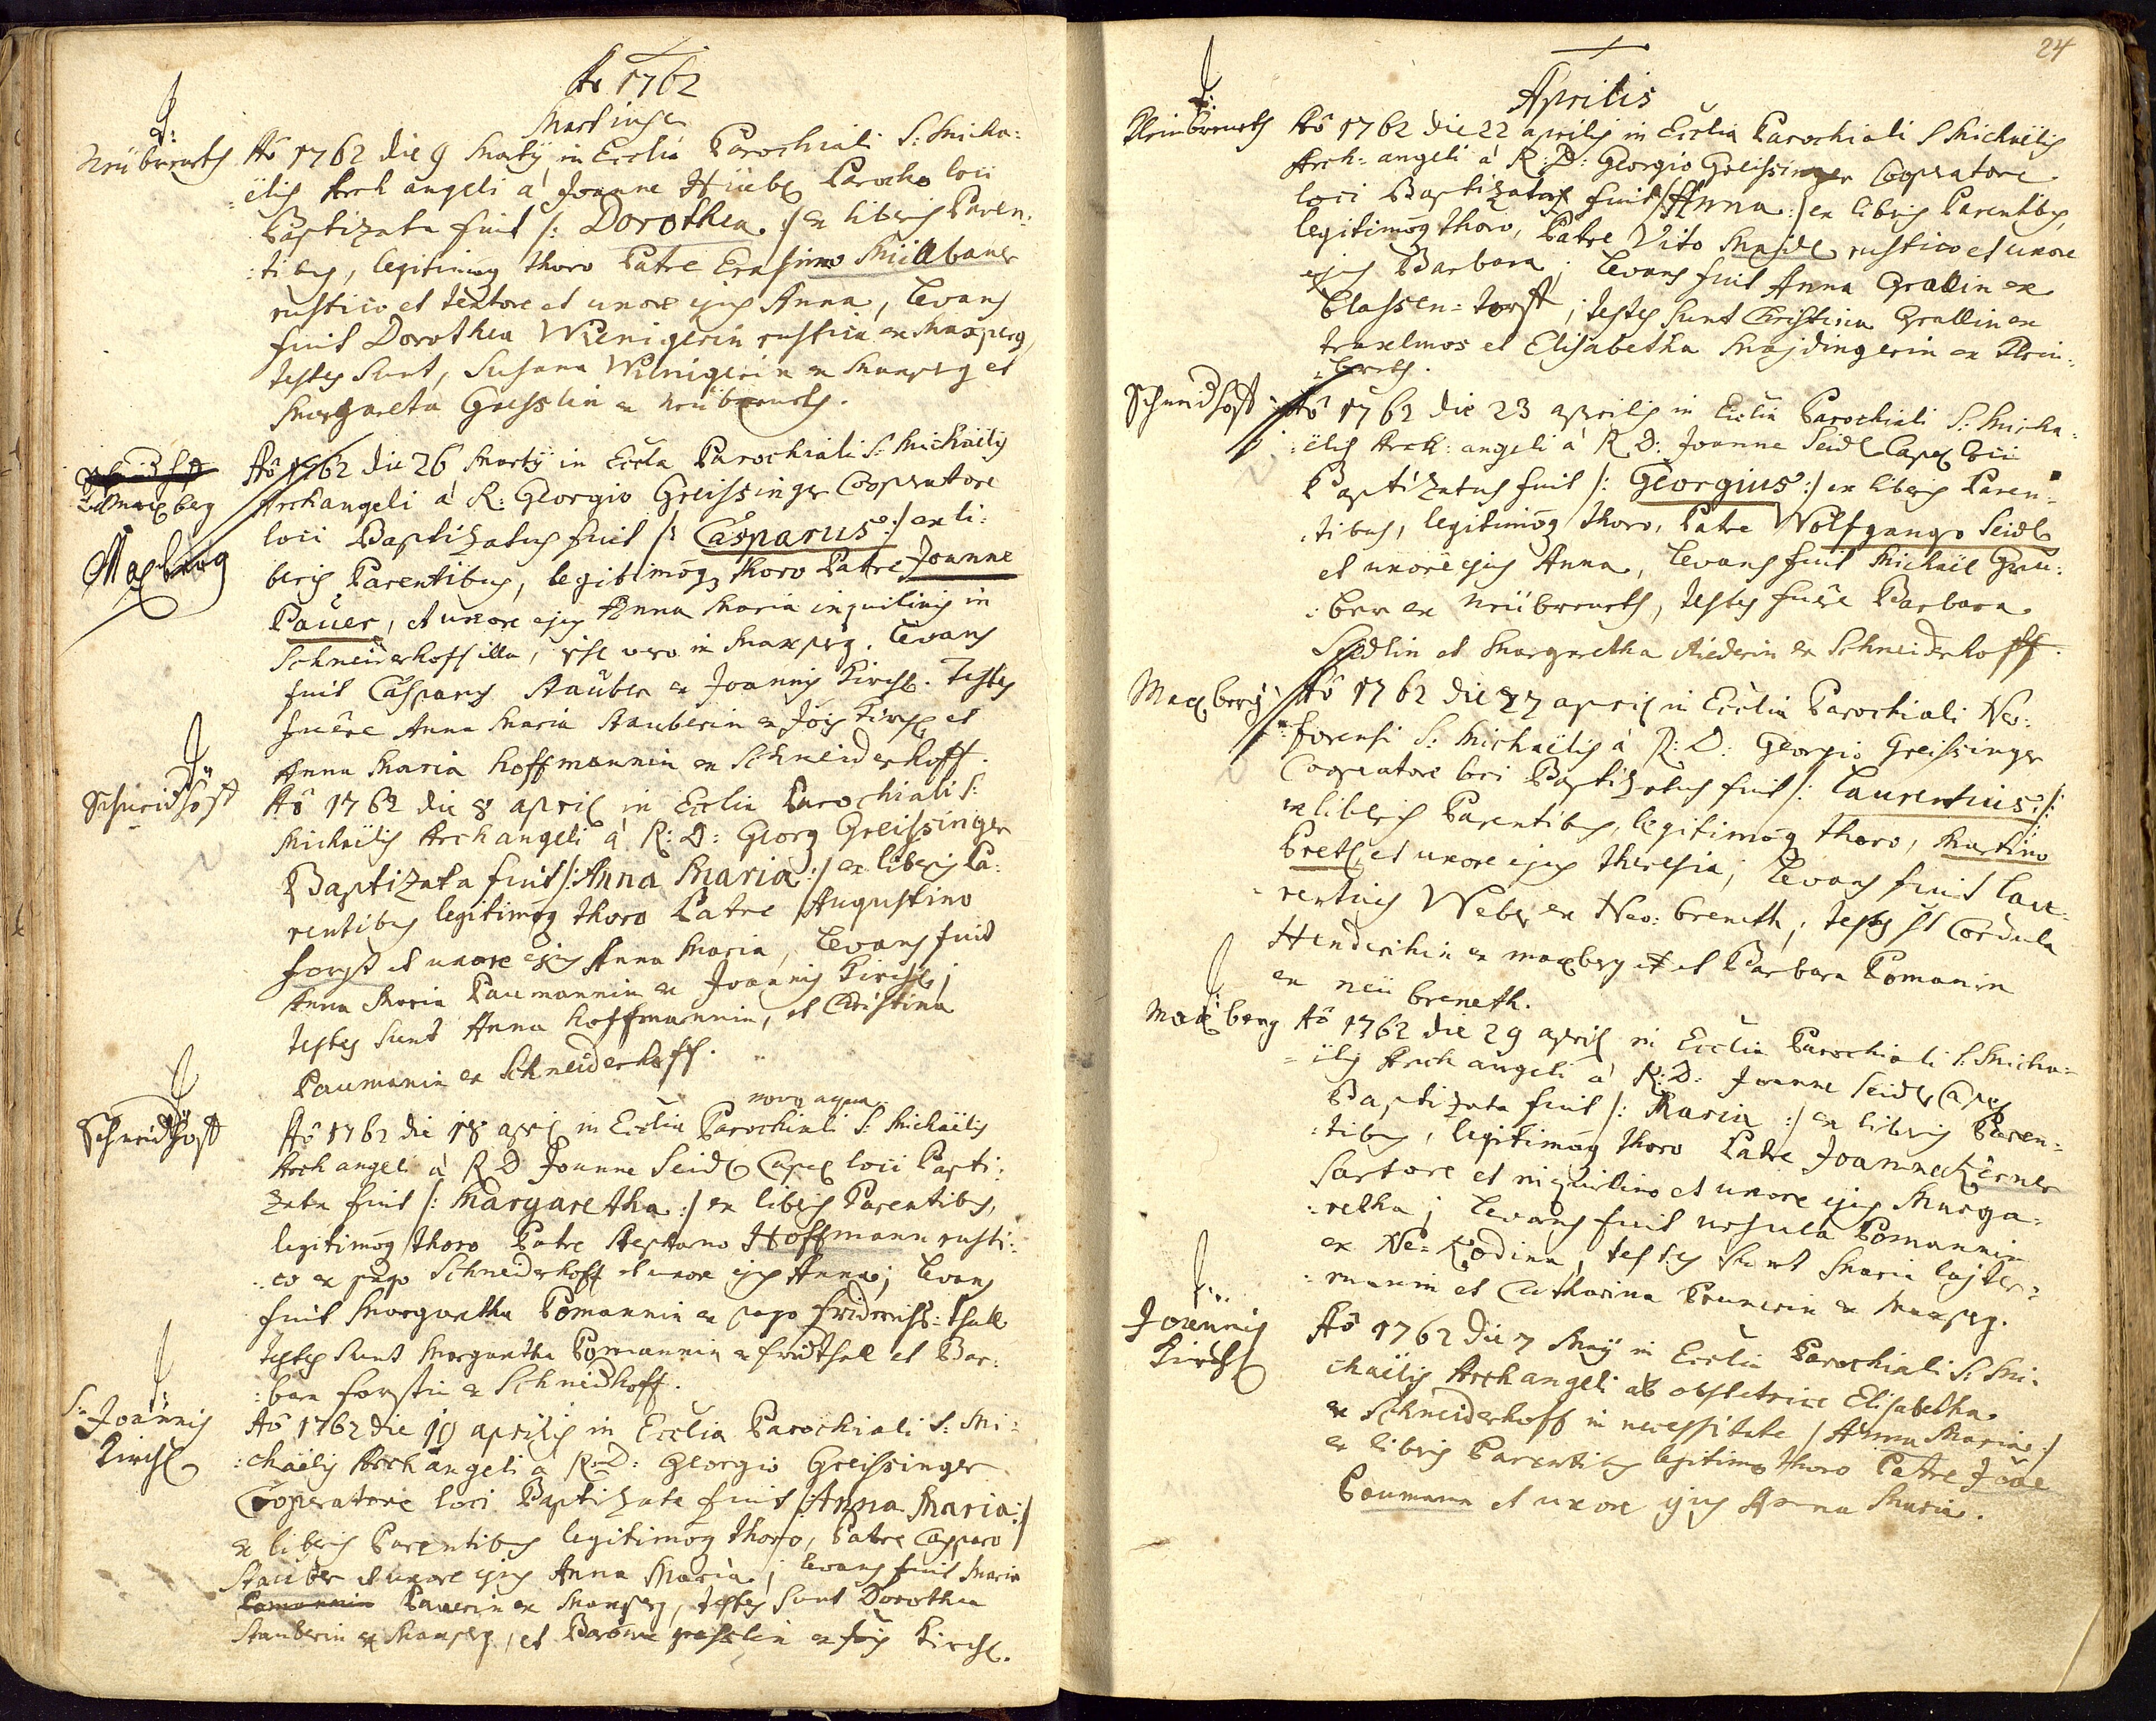 Ao 1762
Martius
Neübreneth Aõ 1762 die 9 Martÿ in Ecclia Parochiali S: Micha:
:ëlis Archangeli á Joanne Hüebr Parocho loci
Baptizata fuit /: Dorothea :/ ex liberis Paren:
:tibus, legitimoq thoro Patre Erasimo Müllbauer
rustico et textore et uxore ejus Anna, levans
fuit Dorothea Wienigerin rustica ex Maxperg,
testes sunt, Susana Wienigerin ex Maxperg et
Margareta Gresslin ex neübreneth.
Maxberg
Maxberg
Aõ 1762 die 26 Martÿ in Eccla Parochiali S: Michaëlis
Archangeli á R: Georgio Greissinger Cooperatore
loci Baptizatus fuit /: Casparus :/ ex li:
beris Parentibus, legitimoq thoro Patre Joanne
Pauer, et uxore ejus Anna Maria inquilinis in
Schneiderhoff illa, ipse vero in Maxperg. levans
fuit Casparus Stauber ex Joannis Kirchl. Testes
fuêre Anna Maria Stauberin ex Jois Kirchl et
Anna Maria Hoffmannin ex Schneiderhoff.
Schneidhoff Aõ 1762 die 8 april in Ecclia Parochiali S:
Michaëlis Archangeli á R: D: Georg Greissinger
Baptizata fuit /: Anna Maria :/ ex liberis Pa:
rentibus legitimoq thoro Patre Augustino
Forst et uxore ejus Anna Maria, levans fuit
Anna Maria Paumannin ex Joannis Kirchl,
testes sunt Anna Hoffmannin, et Christina
Paumanin ex Schneiderhoff.
nova aqua
Schneidhoff Aõ 1762 die 18 apri in Ecclia Parochiali S: Michaëlis
Archangeli á R D Joanne Seidl Capel loci Bapti:
zata fuit /: Margaretha :/ ex liberis Parentibus,
legitimoq thoro Patre Stephano Hoffmann rusti:
:co ex pago Schneiderhoff et uxore ejus Anna; levans
fuit Margaretha Pomannin ex pago Fridrichs:thall
testes sunt Margaretha Pomannin ex Fridthall et Bar:
:bara Forstin ex Schneidhoff.
S: Joannis
Kirchl
Aõ 1762 die 19 aprilis in Ecclia Parochiali S: Mi:
:chaëlis Archangeli á R: D: Georgio Greissinger
Cooperatore loci Baptizata fuit /: Anna Maria :/
ex liberis Parentibus legitimoq thoro, Patre Casparo
Stauber et uxore ejus Anna Maria; levans fuit Maria
Pomannin Pauerin ex Maxperg, testes sunt Dorothea
Stauberin ex Maxperg, et Barbara Gresslin ex Jois Kirchl.
24
Aprilis
Kleinbreneth Aõ 1762 die 22 aprilis in Ecclia Parochiali S Michaëlis
Arch=angeli á R: D: Georgio Greissinger Cooperatore
loci Baptizata fuit /: Anna :/ ex liberis Parentibus,
legitimoq thoro, Patre Vito Snaidl rustico et uxore
ejus Barbara; levans fuit Anna Grallin ex
Classen=torff; testes sunt Christina Grallin ex
traxelmos et Elisabetha Snajdingerin ex Klein:
:breth.
Schneidhoff Aõ 1762 die 23 aprilis in Ecclia Parochiali S: Micha:
:ëlis Arch:angeli á R D: Joanne Seidl Capel loci
Baptizatus fuit /: Georgius :/ ex liberis Paren:
:tibus, legitimoq thoro, Patre Wolfgango Seidl
et uxore ejus Anna, levans fuit Michael Gru:
:ber ex Neübreneth, testes fuêre Barbara
Seidlin et Margaretha Riederin ex Schneiderhoff.
Maxberg Aõ 1762 die 27 april in Ecclia Parochiali Neo:
:forensi S: Michaëlis á R: D: Georgio Greissinger
Cooperatore loci Baptizatus fuit /: Laurentius :/
ex liberis Parentibus, legitimoq thoro, Martino
Pretl et uxore ejus Theresia; levans fuit Lau:
rentius Weber ex Neo:breneth; testes st Cordula
Henderihin ex maxberg et Barbara Pomanin
ex neü breneth.
Maxberg Aõ 1762 die 29 april in Ecclia Parochiali S: Micha=
=ëlis Archangeli á R: D: Joanne Seidl Capel
Baptizata fuit /: Maria :/ ex liberis Paren:
:tibus, legitimoq thoro Patre Joanne Kerner
Sartore et inquilino et uxore ejus Marga=
:retha; levans fuit ursula Pomannin
ex Ne=Rodina, testes sunt Maria lajter=
:manin et Catharina Prunerin ex Maxperg.
Joannis
Kirchl
Aõ 1762 die 7 Maÿ in Ecclia Parochiali S: Mi:
chaëlis Archangeli ab obstetrice Elisabetha
ex Schneiderhoff in necessitate /: Anna Maria :/
ex liberis Parentibus legitimo thoro Patre Joãe
Paumann et uxore ejus Anna Maria.